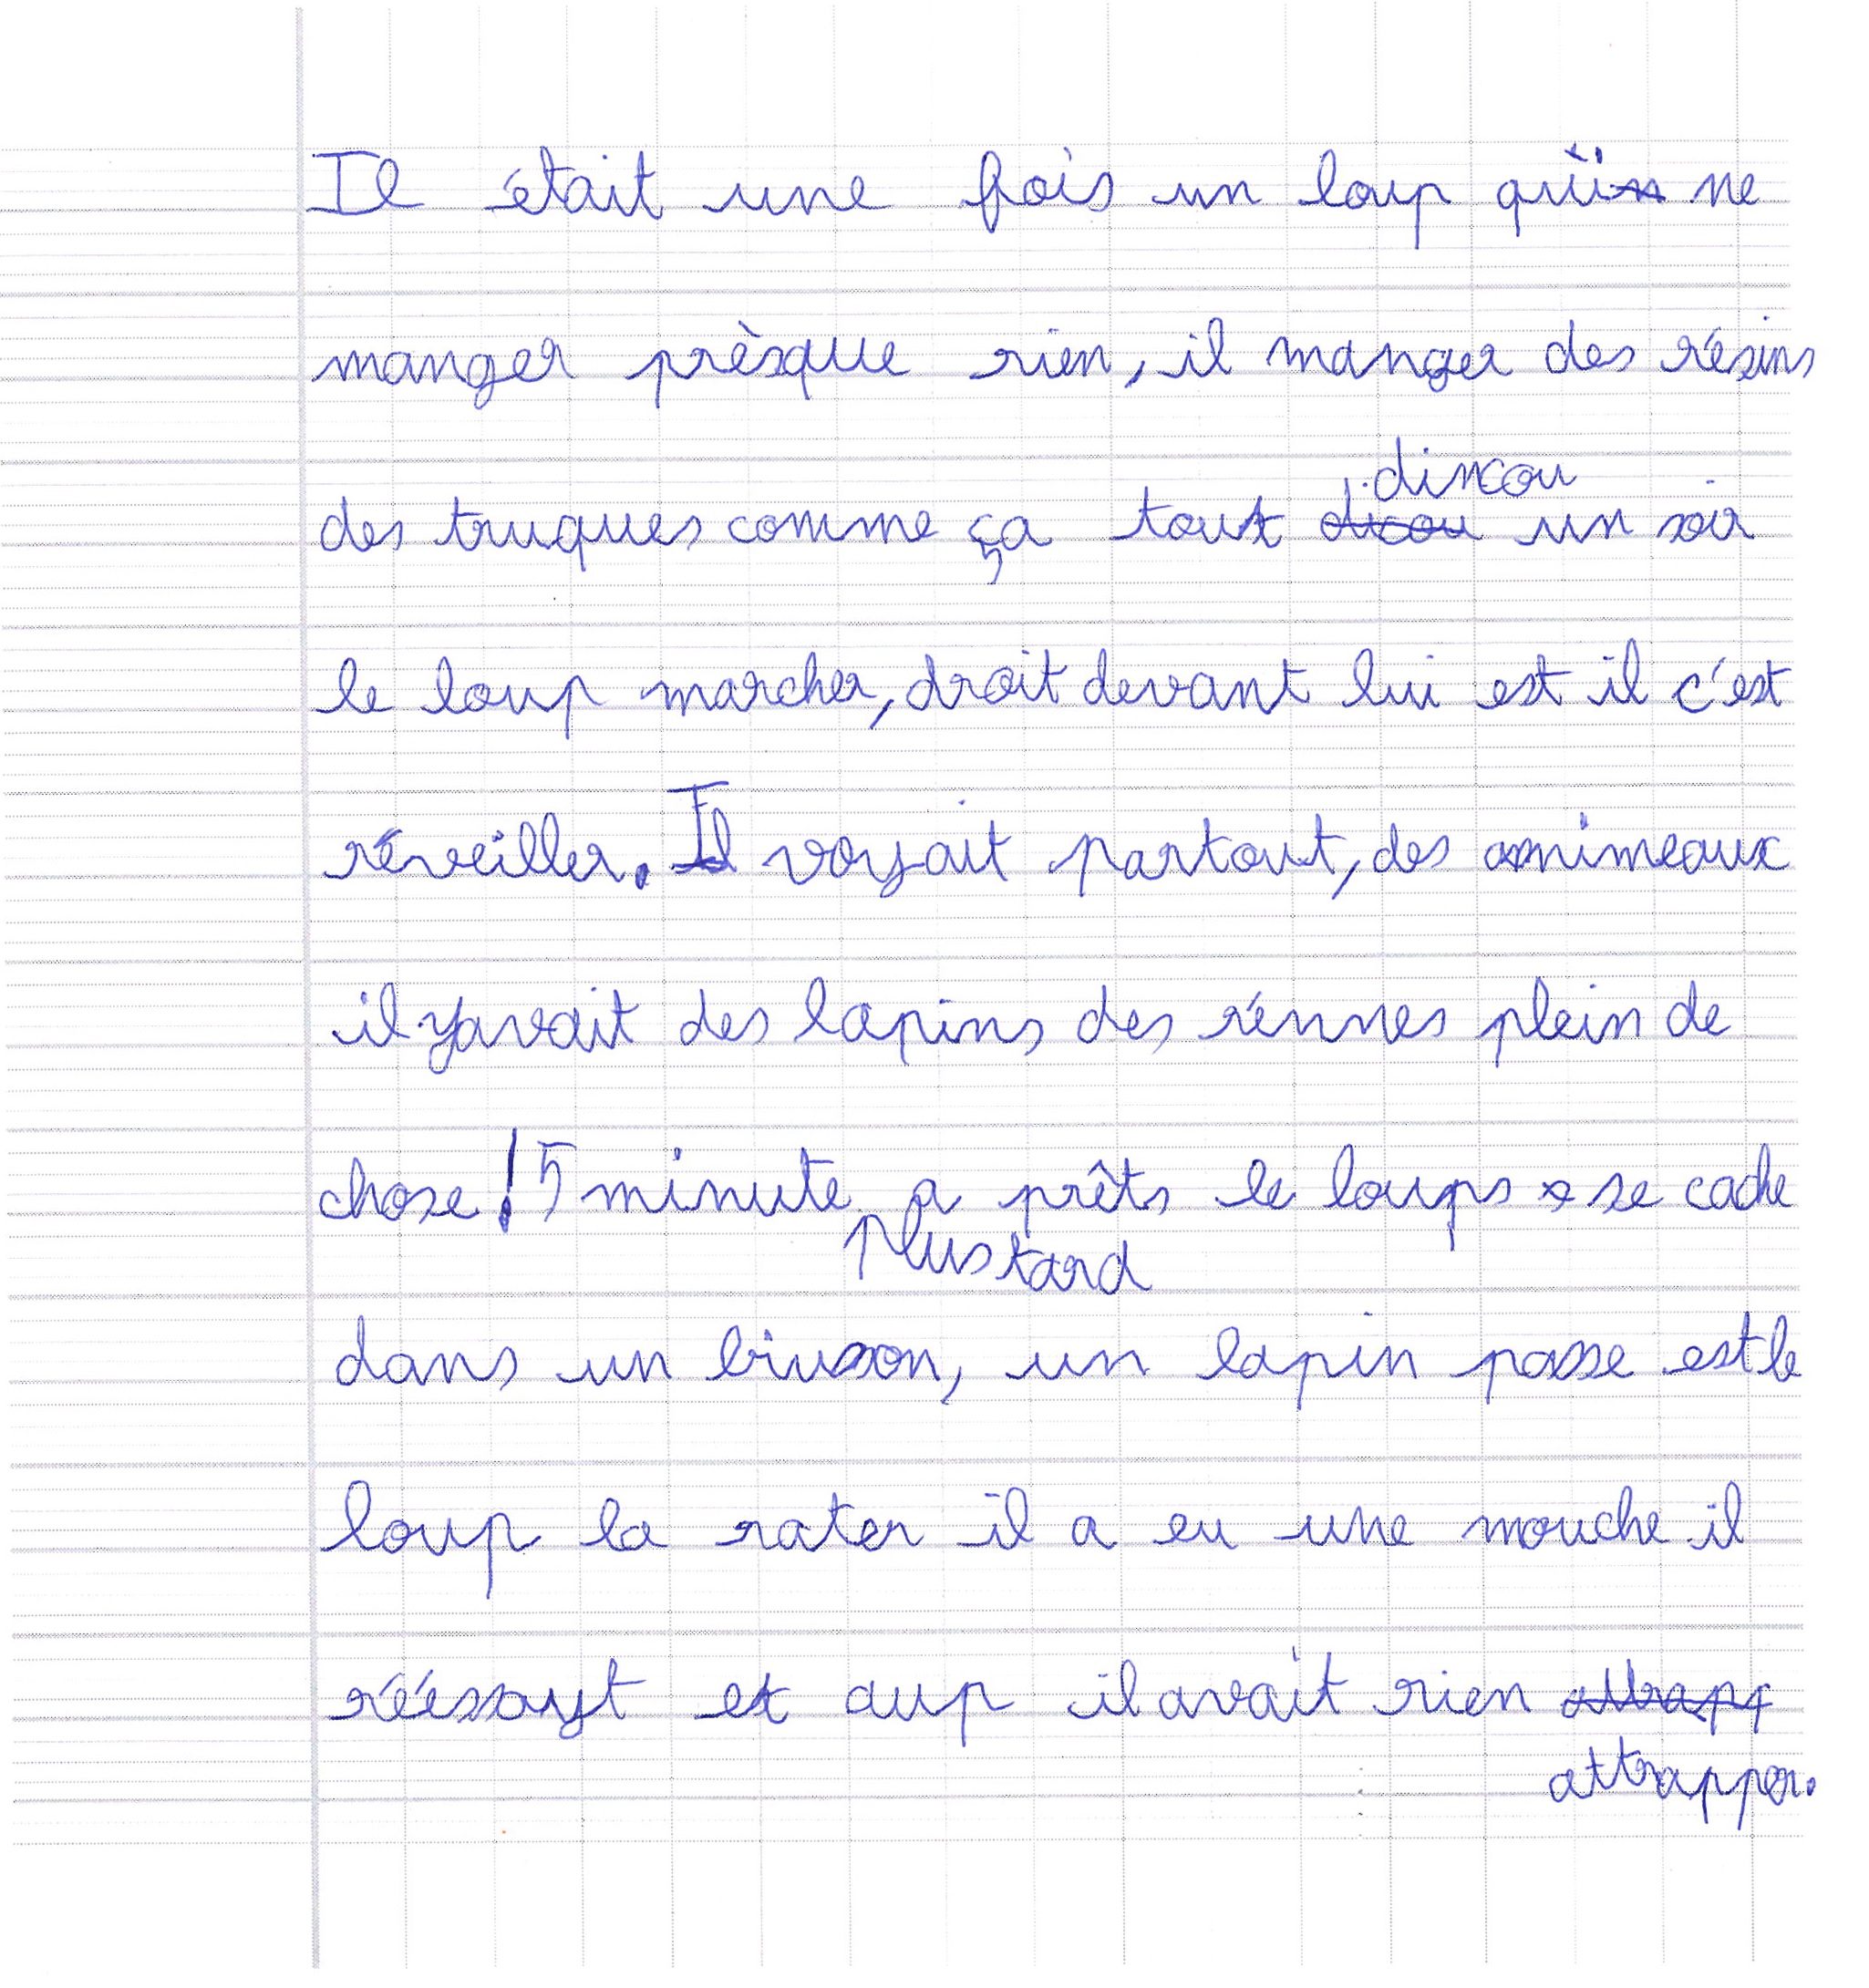 Il était une fois un loup qui ne
manger prèsque rien, il manger des résins
dincou
des truques comme ça tout dicou un soir
le loup marcher, droit devant lui est il c'est
réveiller. Il voyait partout, des animeaux
il yavait des lapins des rénnes plein de
chose ! 5 minute a prêts le loups se cache
Plus tard
dans un biuson, un lapin passe est le
loup la rater il a eu une mouche il
réésayt et aup il avait rien attrapp
attrapper.